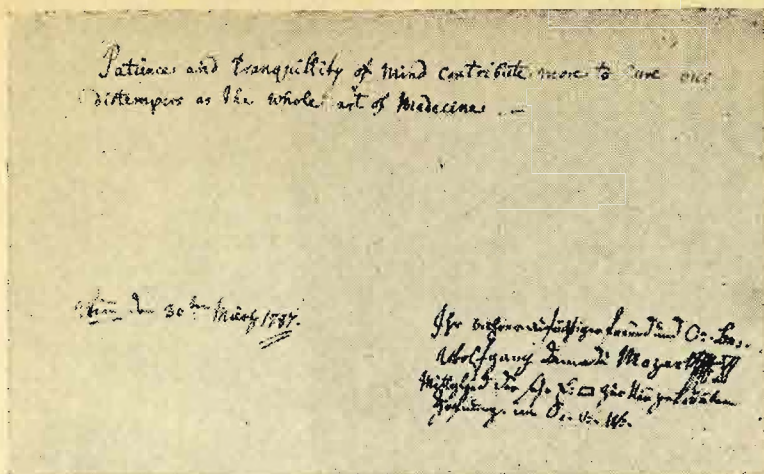 Patience and tranquillity of mind contribute more to cure our
distempers as the whole art of Medecine. —
Wien den 30ten März 1787.
Ihr aufrichtiger freund und O:. Br:.
Wolfgang Amadè Mozart
Mittglied der zur Neugekrönten
Hofnung. im O:. v:. W:.